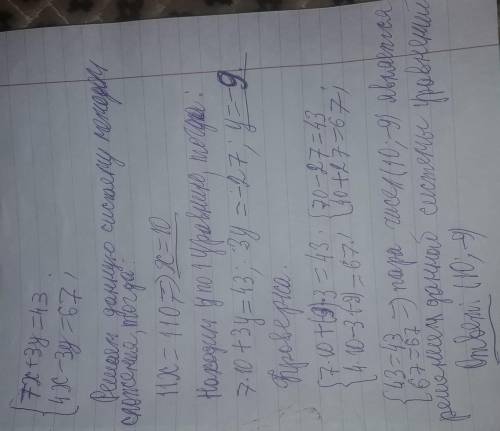 {7x+3y=43
{4x-3y=67;
Решаем данную систему методом
сложения, тогда:
11x=110 => x=10
Находим y по 1 уравнению, тогда:
7·10+3y=43; 3y=-27; y=-9
Проверка.
{7·10+(-9)·3=43. {70-27=43
{4·10-3(-9)=67. {40+27=67;
{43=43 => пара чисел (10; -9) является
{67=67
решением данной системы уравнений
Ответ: (10; -9)